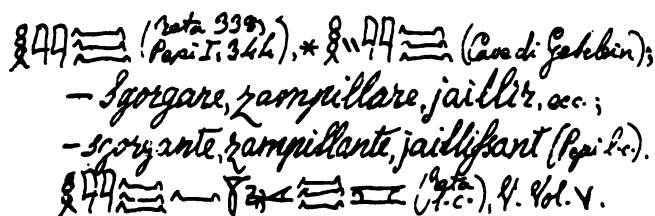 𓎛𓇌𓈗 (Teta 339, Pepi I, 344), * 𓎛𓏭𓇌𓈗 (Cave di Gebelein);
– Sgorgare, zampillare, jaillir, ecc.;
– sgorgante, zampillante, jaillissant (Pepi l.c.).
𓎛𓇌𓈗 (Teta l.c.), V. Vol. V.